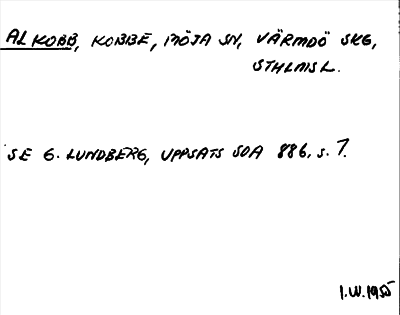 ALKOBB, KOBBE, MÖJA SN, VÄRMDÖ SKG,
STHLMSL.
SE G. LUNDBERG, UPPSATS SOA 886, s. 7.
I.W. 1955